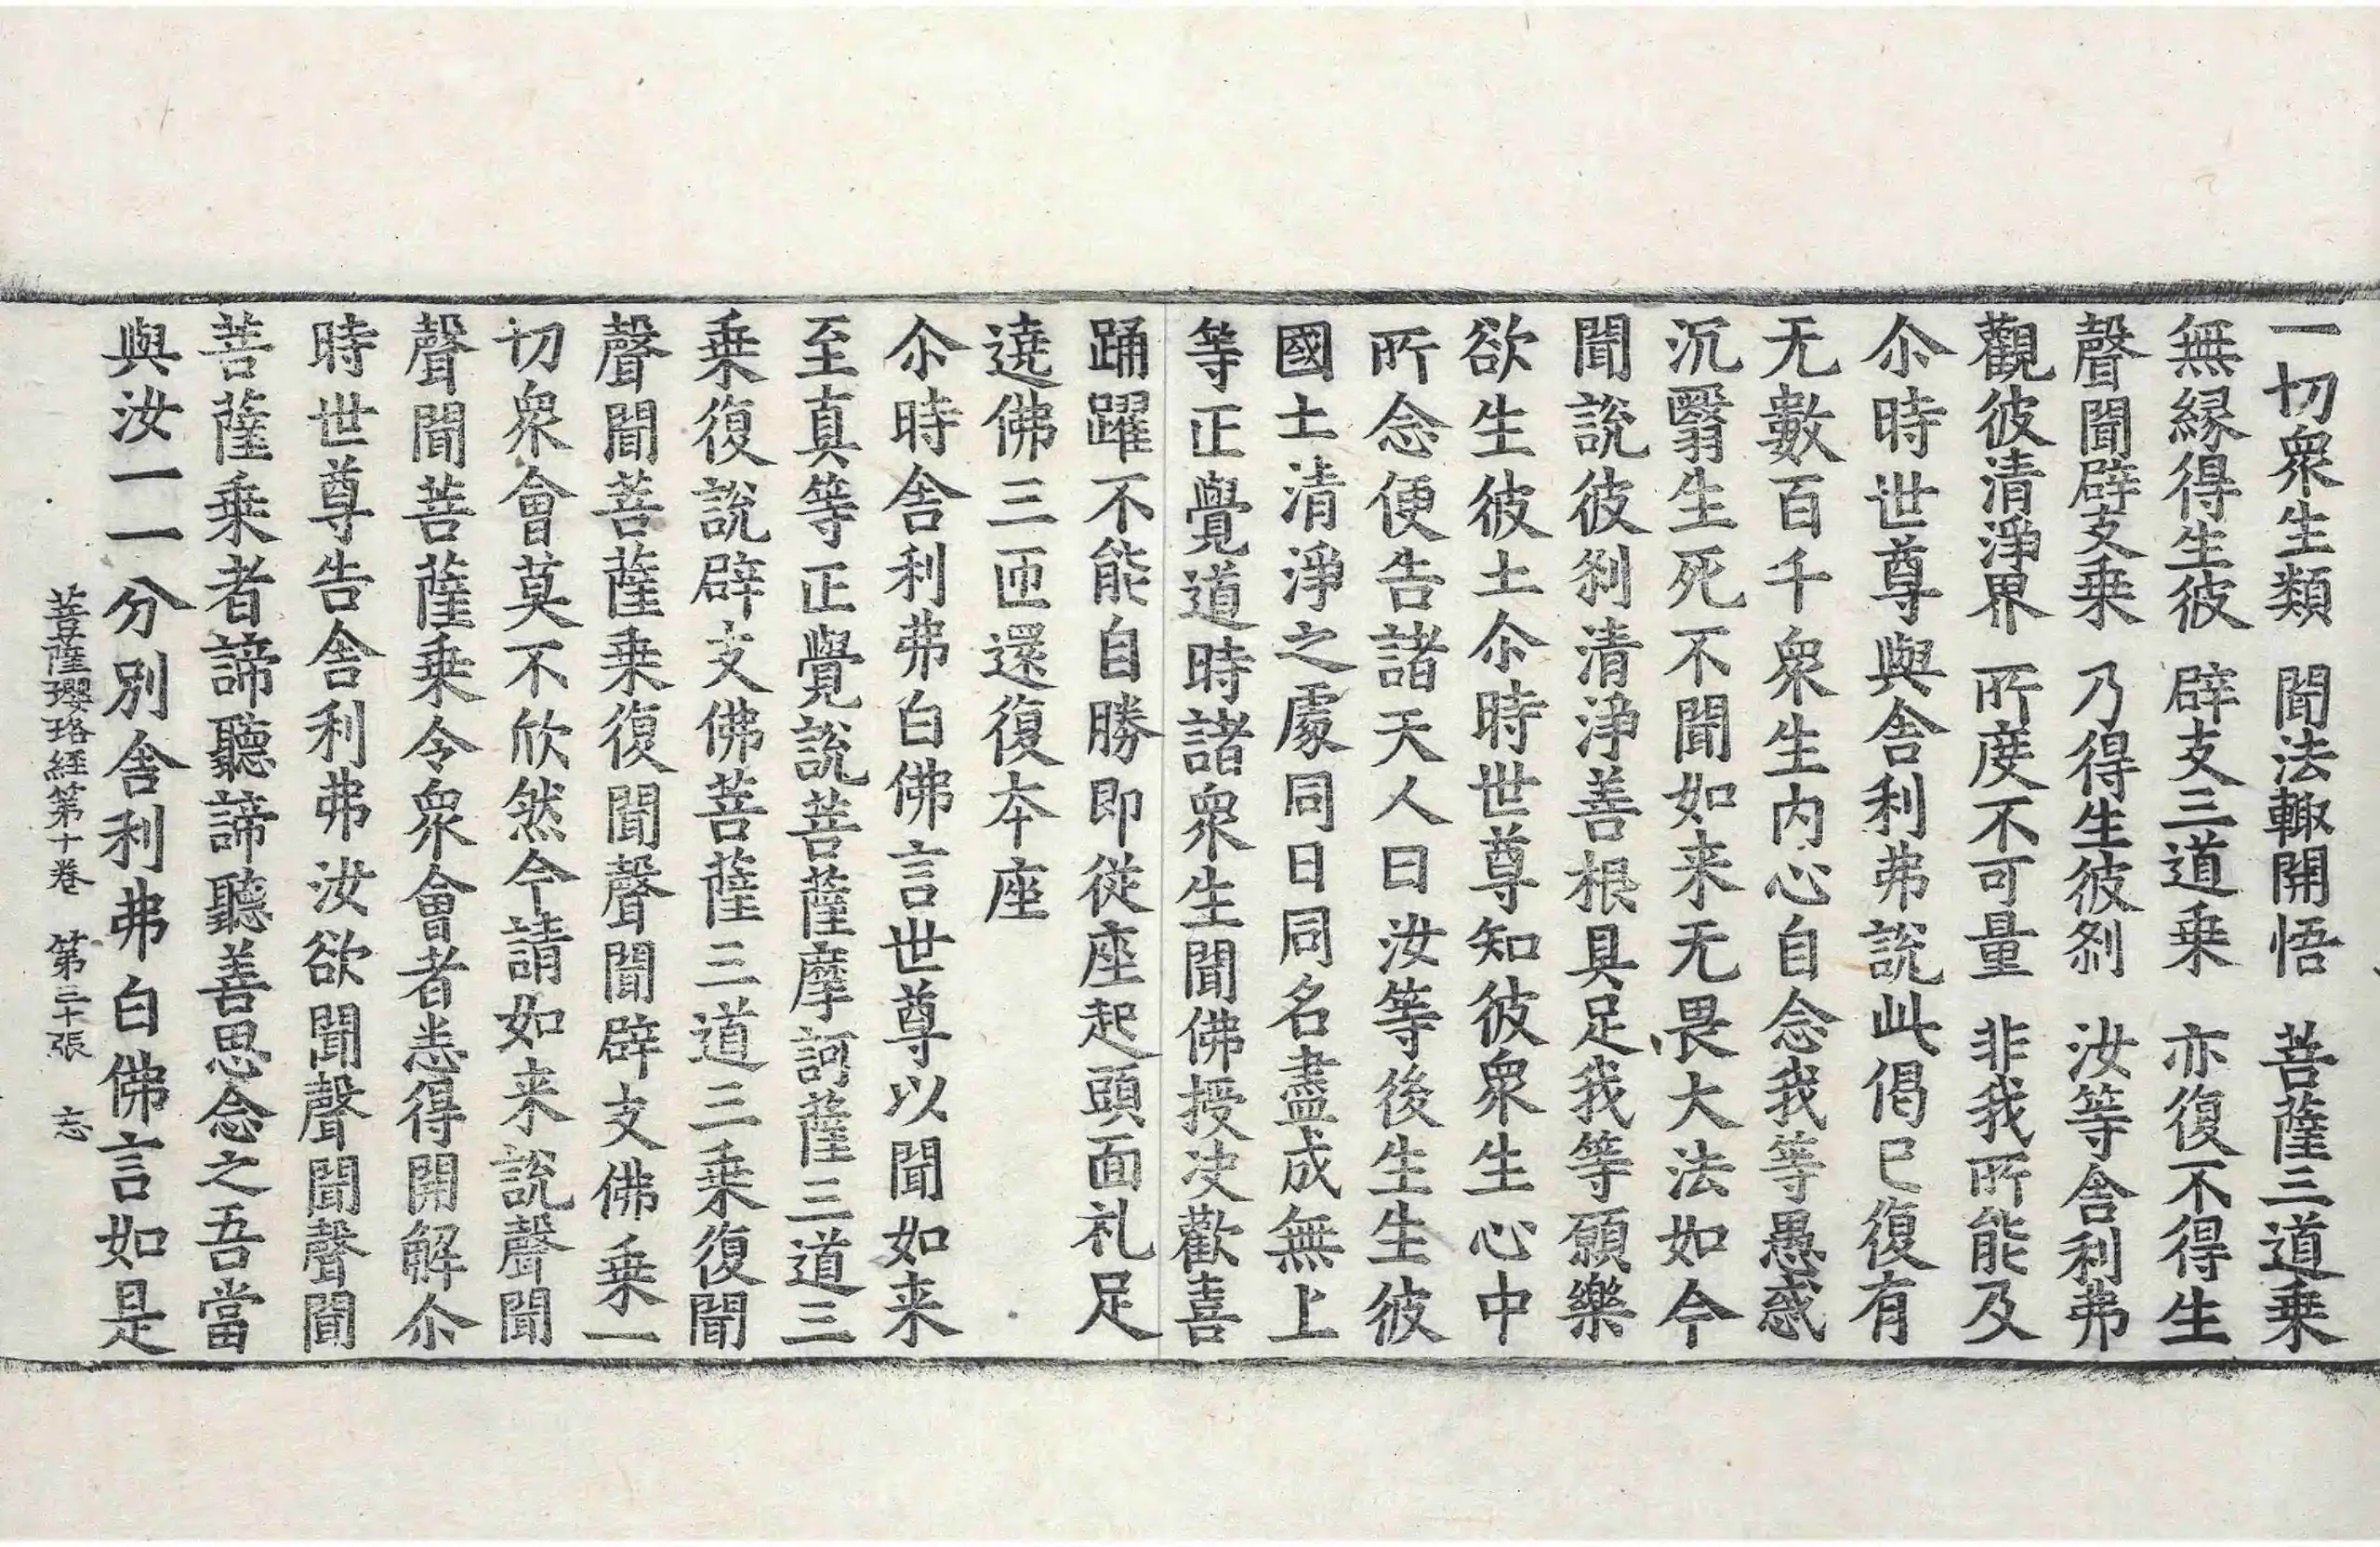 一切衆生類　聞法輙開悟　菩薩三道乗
無縁得生彼　辟支三道乗　亦復不得生
聲聞辟支乗　乃得生彼刹　汝等舎利弗
觀彼清淨界　所度不可量　非我所能及
尒時世尊與舎利弗說此偈已復有
无數百千衆生内心自念我等愚惑
沉翳生死不聞如来无畏大法如今
聞說彼刹清淨善根具足我等願樂
欲生彼土尒時世尊知彼衆生心中
所念便告諸天人曰汝等後生生彼
國土清淨之處同日同名盡成無上
等正覺道時諸衆生聞佛授决歡喜
踊躍不能自勝即從座起頭面礼足
遶佛三匝還復本座
尒時舎利弗白佛言世尊以聞如来
至真等正覺說菩薩摩訶薩三道三
乗復說辟支佛菩薩三道三乗復聞
聲聞菩薩乗復聞聲聞辟支佛乗一
切衆會莫不欣然今請如来說聲聞
聲聞菩薩乗令衆會者悉得開解尒
時世尊告舎利弗汝欲聞聲聞聲聞
菩薩乗者諦聽諦聽善思念之吾當
與汝一一分別舎利弗白佛言如是
菩薩瓔珞経第十卷　第三十張　忘